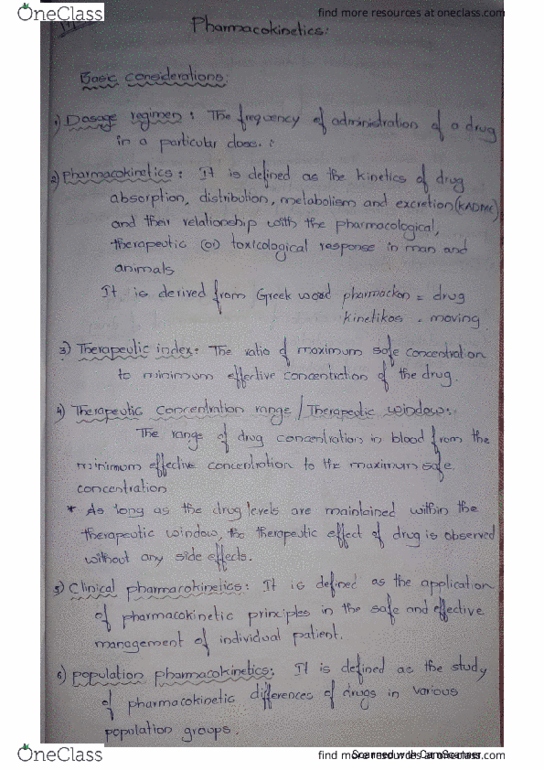 OneClass
find more resources at oneclass.com
Pharmacokinetics:
Basic considerations:
1) Dosage regimen: The frequency of administration of a drug
in a particular dose.:
2) pharmacokinetics: It is defined as the kinetics of drug
absorption, distribution, metabolism and excretion (KADME)
and their relationship with the pharmacological,
therapeutic (or) toxicological response in man and
animals
It is derived from Greek word pharmackon = drug
kinetikos = moving
3) Therapeutic index: The ratio of maximum safe concentration
to minimum effective concentration of the drug.
4) Therapeutic concentration range / Therapeutic window:
The range of drug concentrations in blood from the
minimum effective concentration to the maximum safe
concentration
* As long as the drug levels are maintained within the
therapeutic window, the therapeutic effect of drug is observed
without any side effects.
5) Clinical pharmacokinetics: It is defined as the application
of pharmacokinetic principles in the safe and effective
management of individual patient.
6) population pharmacokinetics: It is defined as the study
of pharmacokinetic differences of drugs in various
population groups.
OneClass
find more resources at oneclass.com
Scanned with CamScanner